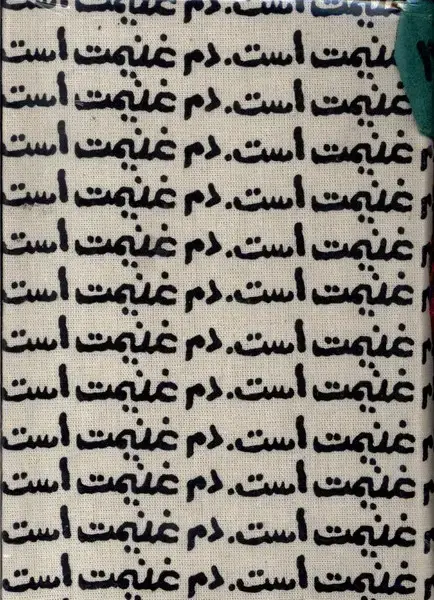 غنیمت است. دم غنیمت است
غنیمت است. دم غنیمت است
غنیمت است. دم غنیمت است
غنیمت است. دم غنیمت است
غنیمت است. دم غنیمت است
غنیمت است. دم غنیمت است
غنیمت است. دم غنیمت است
غنیمت است. دم غنیمت است
غنیمت است. دم غنیمت است
غنیمت است. دم غنیمت است
غنیمت است. دم غنیمت است
غنیمت است. دم غنیمت است
غنیمت است. دم غنیمت است